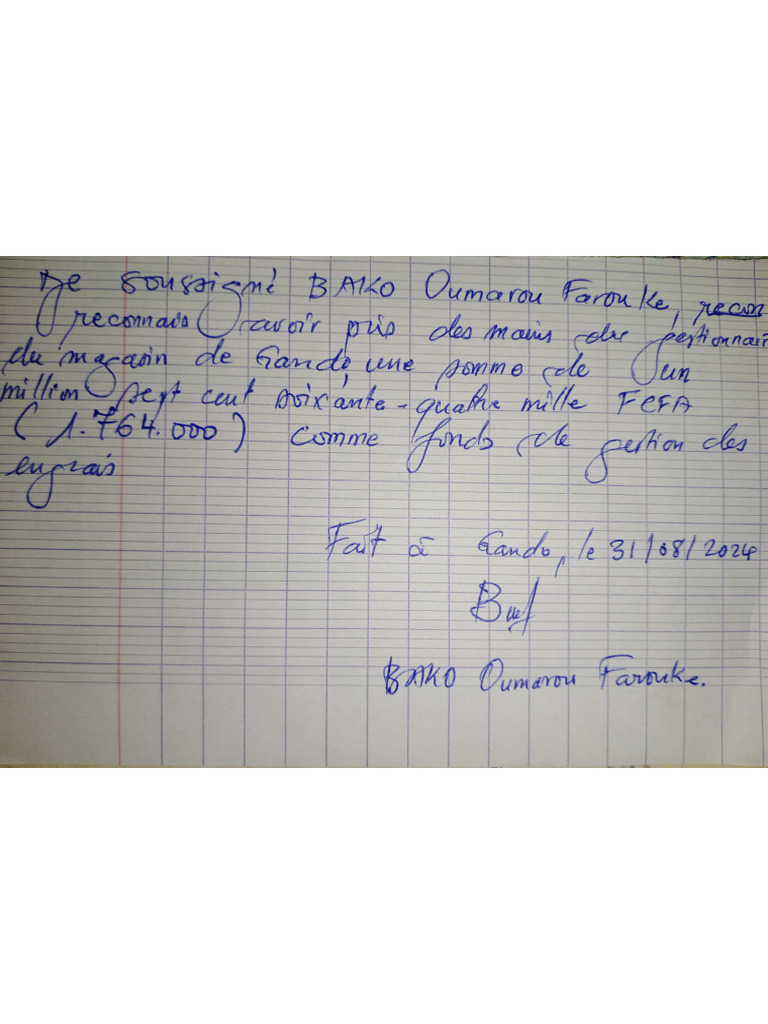 Je soussigné BAKO Oumarou Farouke, recon
reconnais avoir pris des mains du gestionnair
du magasin de Gando une somme de un
million sept cent soixante-quatre mille FCFA
(1.764.000) comme fonds de gestion des
engrais
Fait à Gando, le 31/08/2024
BAKO Oumarou Farouke.